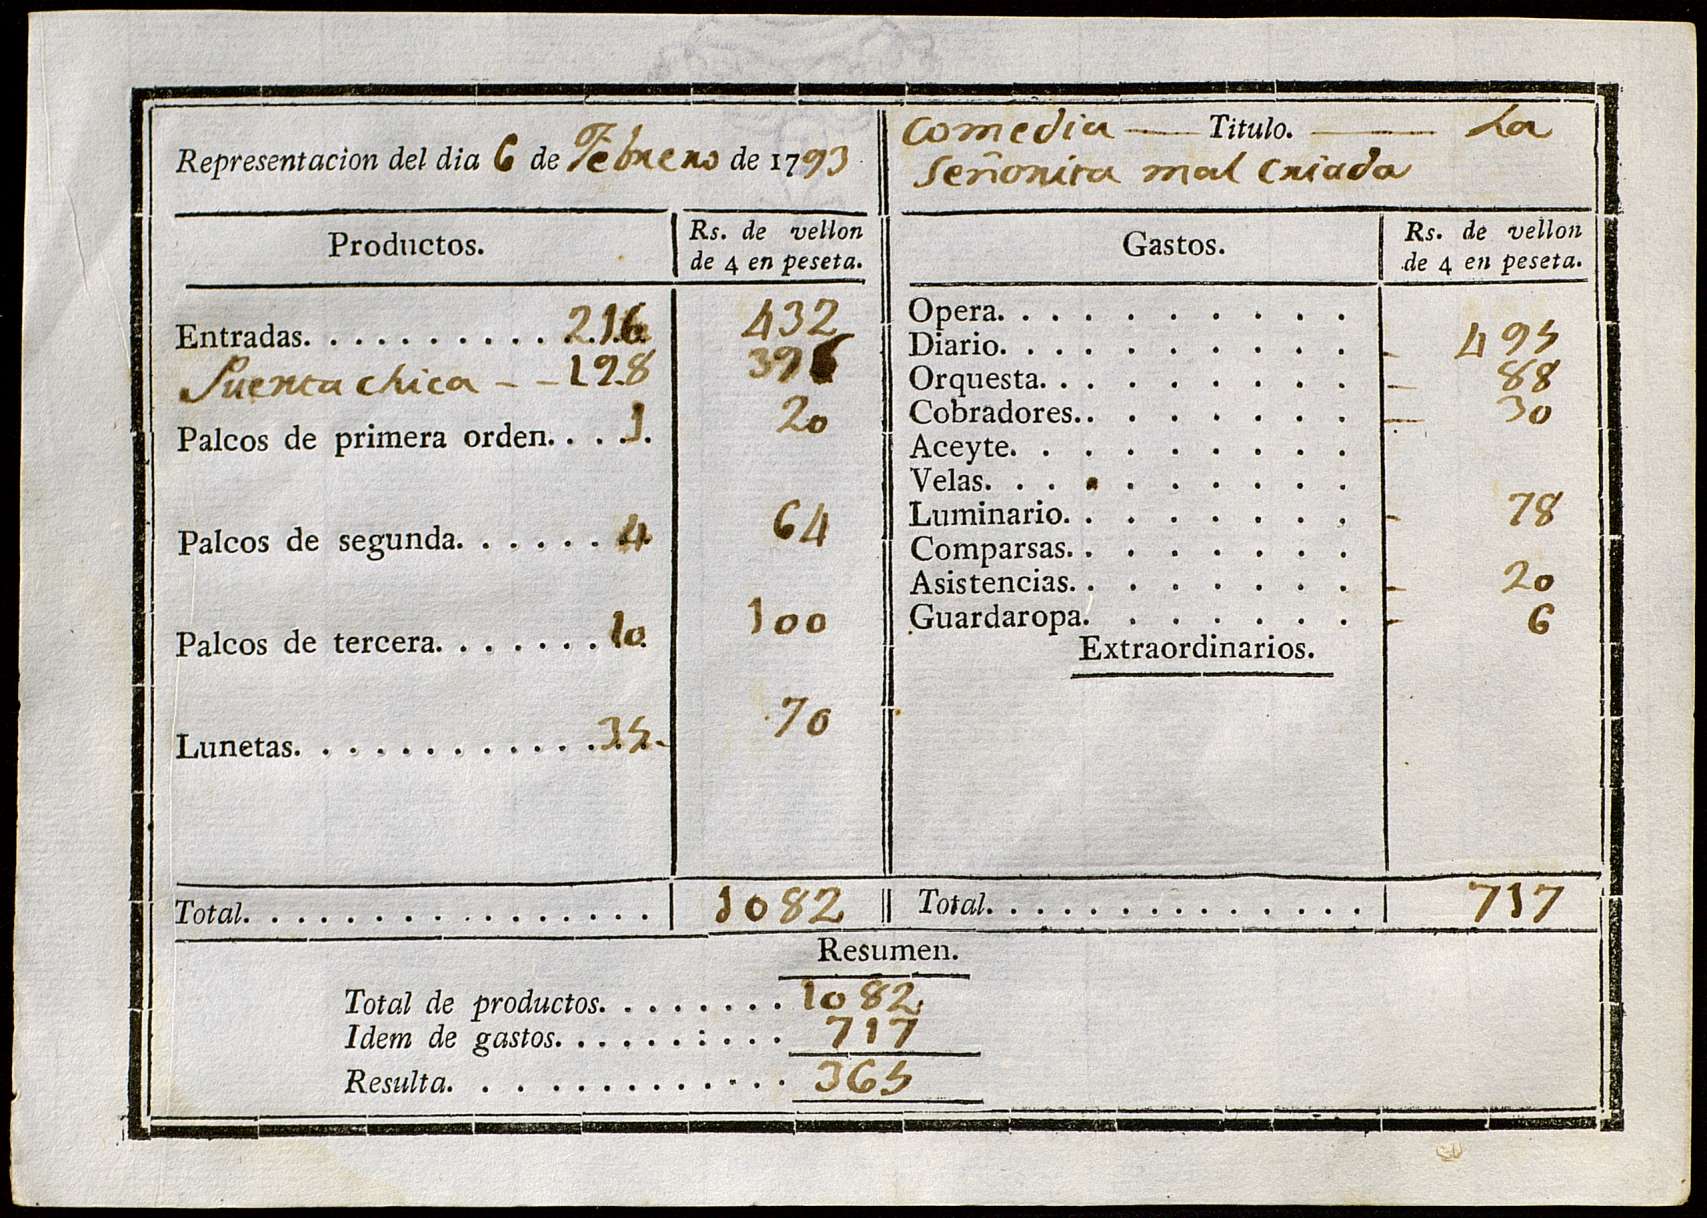 Representacion del dia 6 de Febrero de 1793
Comedia — Titulo. — La
Señorita mal Criada
Productos.
Rs. de vellon
de 4 en peseta.
Entradas. . . . . . . . . . . 216 432
Puerta chica - - 198 396
Palcos de primera orden. . . . 1. 20
Palcos de segunda. . . . . . . 4 64
Palcos de tercera. . . . . . . 10. 100
Lunetas. . . . . . . . . . . . . 35. 70
Total. . . . . . . . . . . . . . . . . 1082
Gastos.
Rs. de vellon
de 4 en peseta.
Opera. . . . . . . . . .
Diario. . . . . . . . . . - 495
Orquesta. . . . . . . . . - 88
Cobradores. . . . . . . . - 30
Aceyte. . . . . . . . . .
Velas. . . . . . . . . . .
Luminario. . . . . . . . - 78
Comparsas. . . . . . . .
Asistencias. . . . . . . . - 20
Guardaropa. . . . . . . - 6
Extraordinarios.
Total. . . . . . . . . . . . . . 717
Resumen.
Total de productos. . . . . . . . 1082
Idem de gastos. . . . . . : . . . 717
Resulta. . . . . . . . . . . . . 365